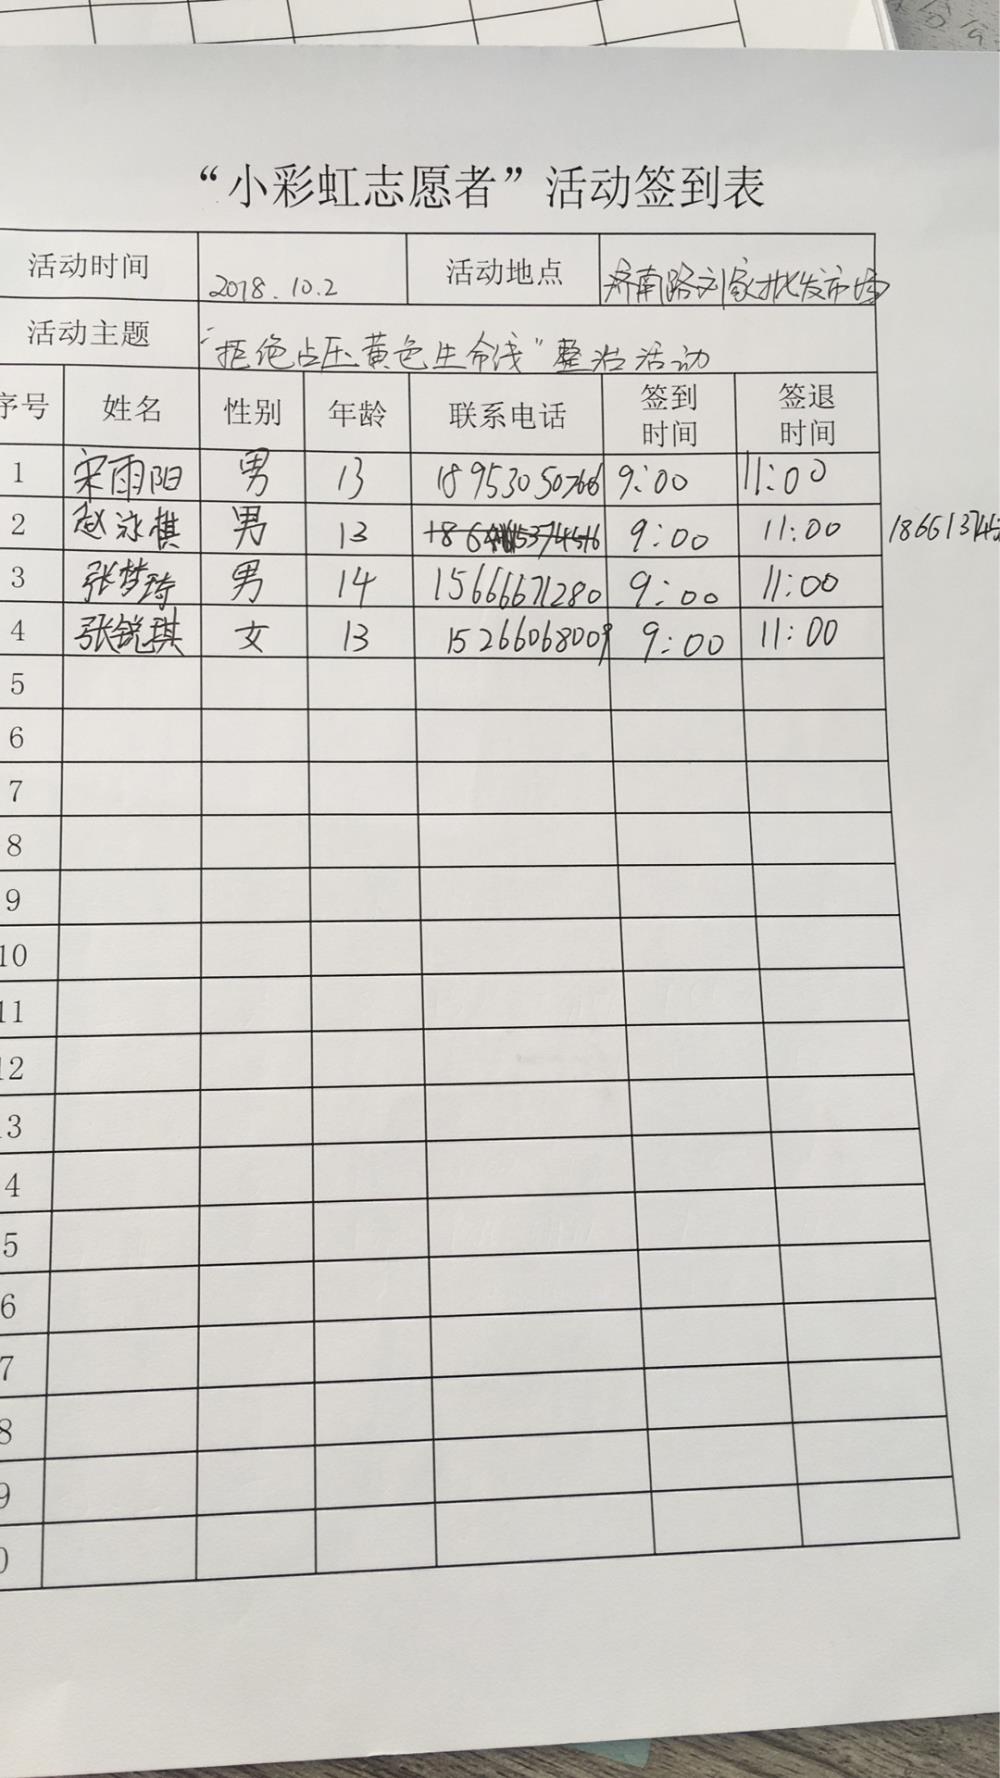 “小彩虹志愿者”活动签到表
活动时间 2018.10.2 活动地点 济南路刘家批发市场
活动主题 “拒绝占压黄色生命线”整治活动
序号 姓名 性别 年龄 联系电话 签到时间 签退时间
1 宋雨阳 男 13 18953050766 9:00 11:00
2 赵泳棋 男 13 9:00 11:00 186613745
3 张梦琦 男 14 15666671280 9:00 11:00
4 张锐琪 女 13 15266068009 9:00 11:00
5
6
7
8
9
10
11
12
13
14
15
16
17
18
19
20